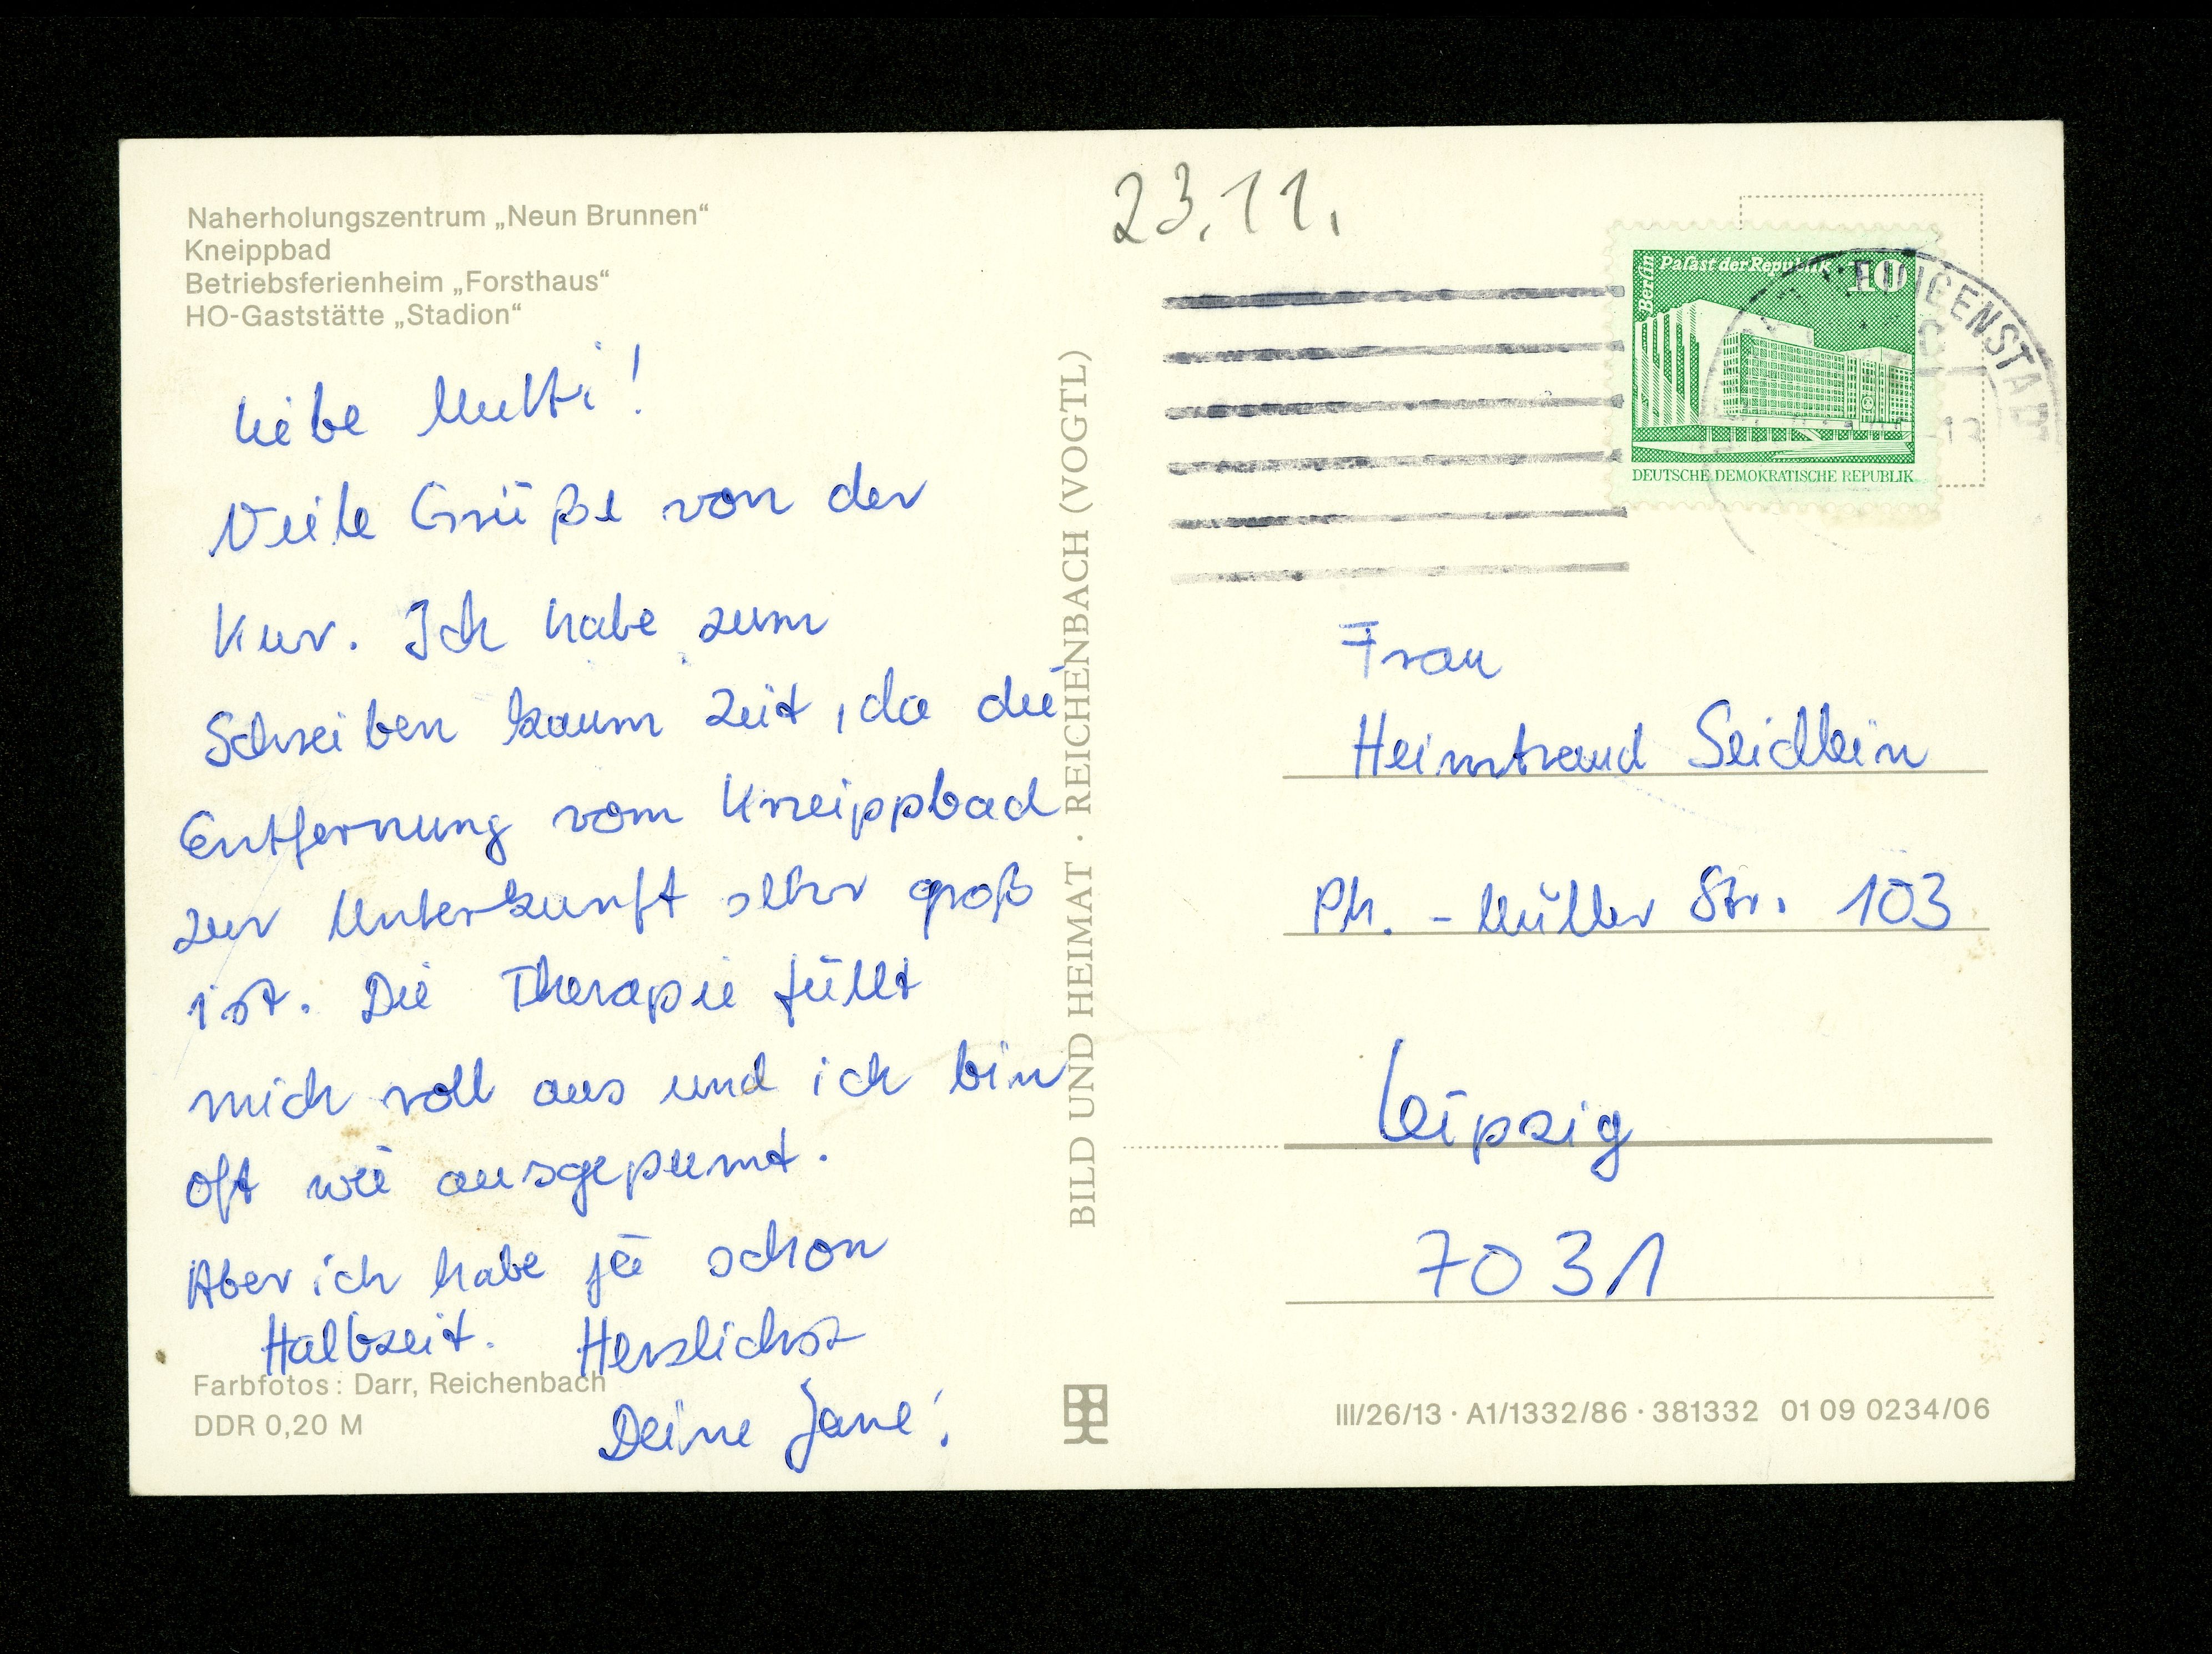 Naherholungszentrum „Neun Brunnen“
Kneippbad
Betriebsferienheim „Forsthaus“
HO-Gaststätte „Stadion“
Liebe Mutti!
Viele Grüße von der
Kur. Ich habe zum
Schreiben kaum Zeit, da die
Entfernung vom Kneippbad
zur Unterkunft sehr groß
ist. Die Therapie füllt
mich voll aus und ich bin
oft wie ausgepumt.
Aber ich habe ja schon
Halbzeit. Herzlichst
Deine Jane!
Farbfotos: Darr, Reichenbach
DDR 0,20 M
BILD UND HEIMAT · REICHENBACH (VOGTL)
23.11.
Berlin
Palast der Republik 10
DEUTSCHE DEMOKRATISCHE REPUBLIK
Frau
Heimtraud Seidlein
Ph. - Müller Str. 103
Leipzig
7031
III/26/13 · A1/1332/86 · 381332 01 09 0234/06